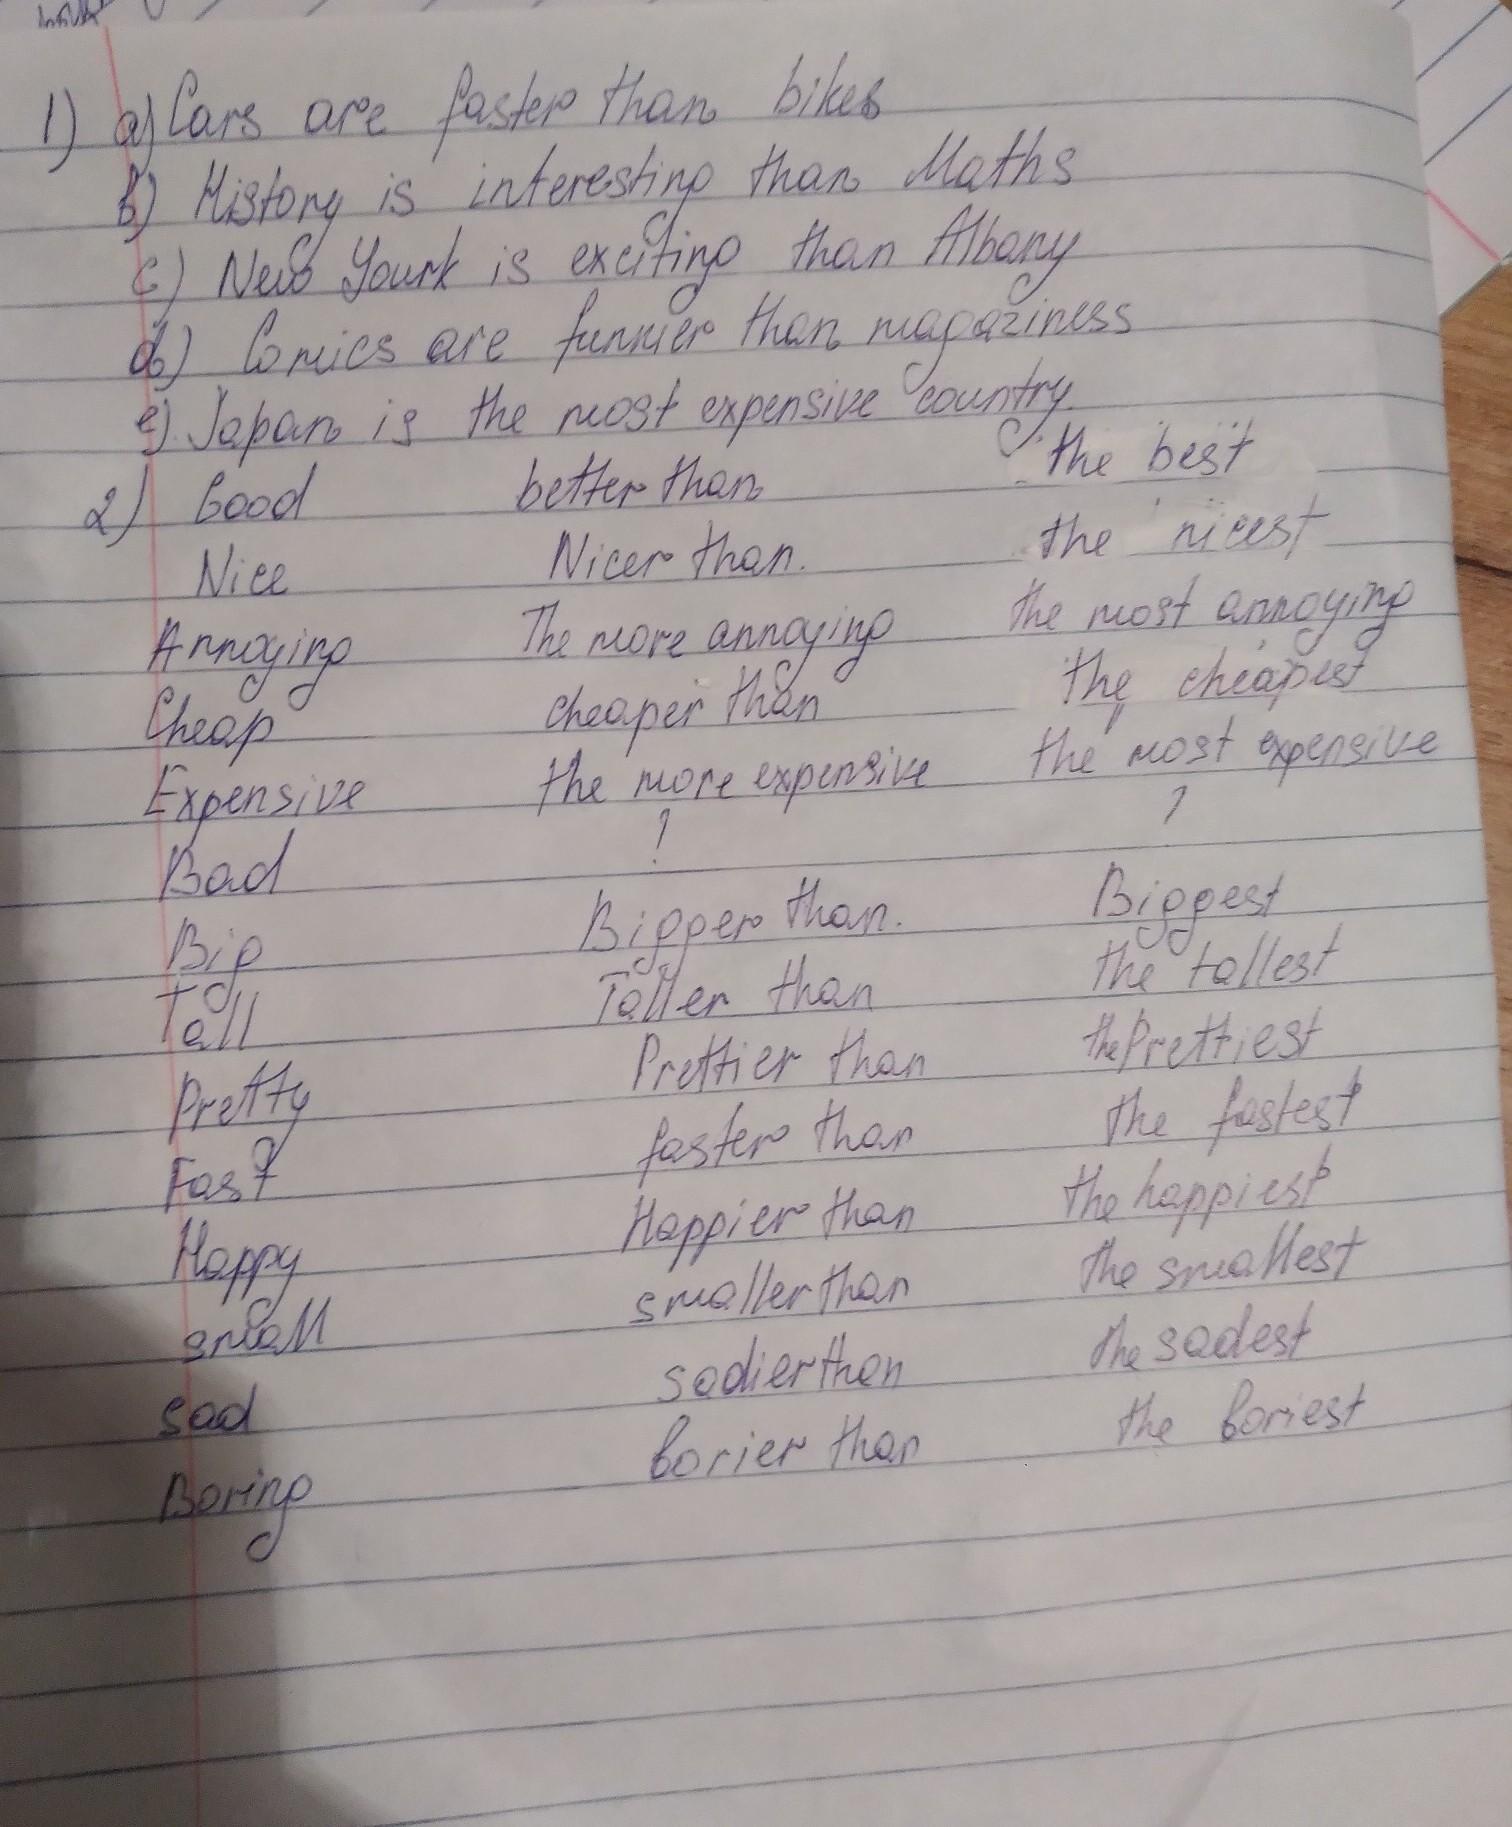 1) a) Cars are faster than bikes
b) History is interesting than Maths
c) New Yourk is exciting than Albany
d) Comics are funnier than magaziness
e) Japan is the most expensive country.
2) Good better than the best
Nice Nicer than. the nicest
Annoying The more annoying the most annoying
Cheap cheaper than the cheapest
Expensive the more expensive the most expensive
Bad ? ?
Big Bigger than. Biggest
Tall Taller than the tallest
Pretty Prettier than the Prettiest
Fast faster than the fastest
Happy Happier than the happiest
small smaller than the smallest
Sad sadier than the sadest
Boring borier than the boriest